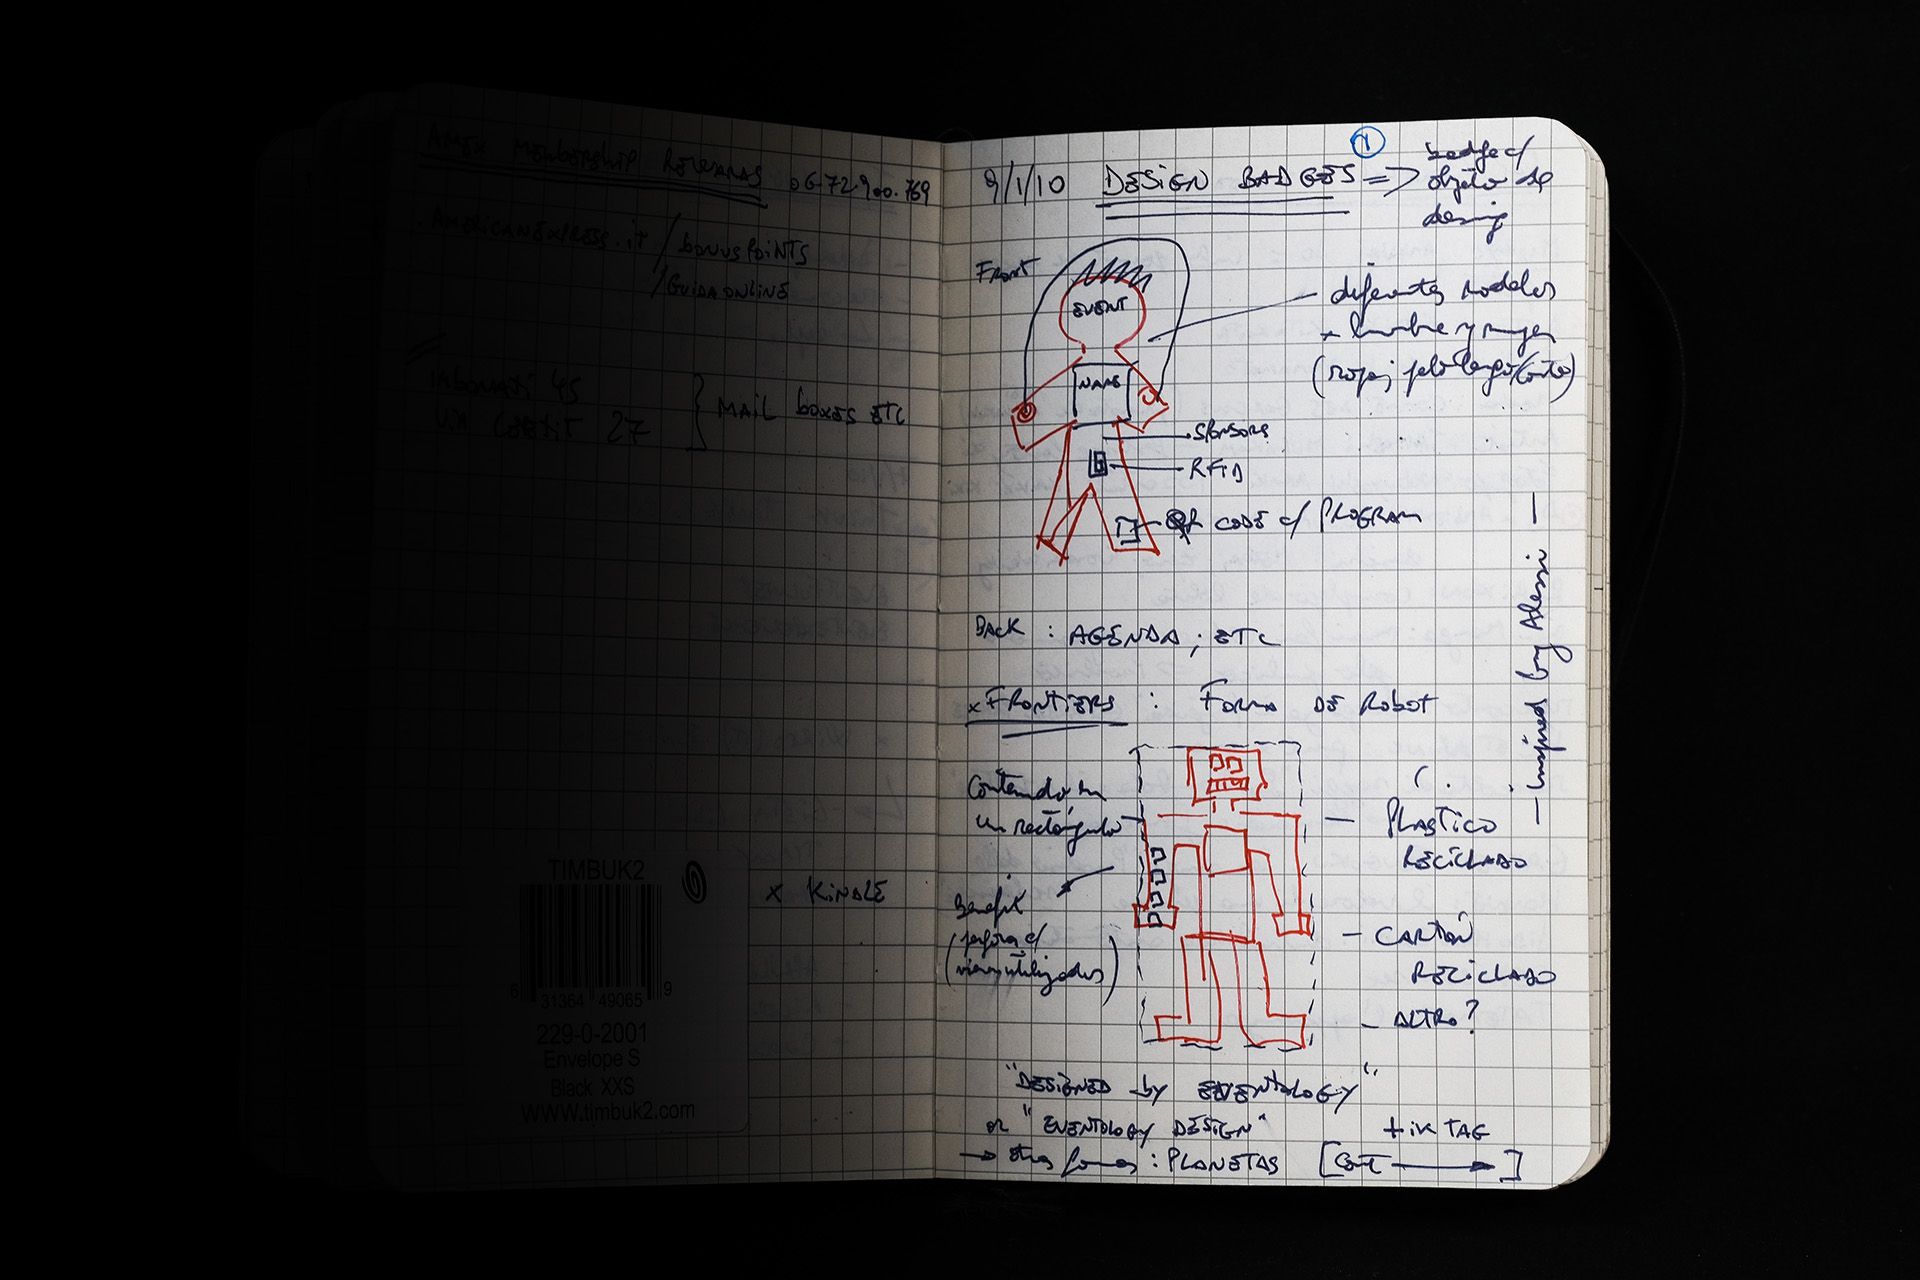 AMEX MEMBERSHIP REWARDS 06.72.900.769
. AMERICANEXPRESS.it / BONUSPOINTS
/GUIDAONLINE
45
VIA 27
MAIL BOXES ETC
TIMBUK2
6 31364 49065 9
229-0-2001
Envelope S
Black XXS
www.timbuk2.com
x KINDLE
1
9/1/10 DESIGN BADGES => badge c/
objeto de
design
FRONT
EVENT
NAME
diferentes modelos
x hombre y mujer
(ropa, pelo largo/corto)
SPONSORS
RFID
QR CODE c/ PROGRAM
BACK : AGENDA, ETC
— inspired by Alessi —
x FRONTIERS : FORMA DE ROBOT
Contenido en
un rectángulo
Benefit
(página c/
)
- PLASTICO
RECICLADO
- CARTÓN
RECICLADO
- ALTRO?
"DESIGNED by EVENTOLOGY"
or "EVENTOLOGY DESIGN"
TAG
→ otras formas : PLANETAS [CONT →]